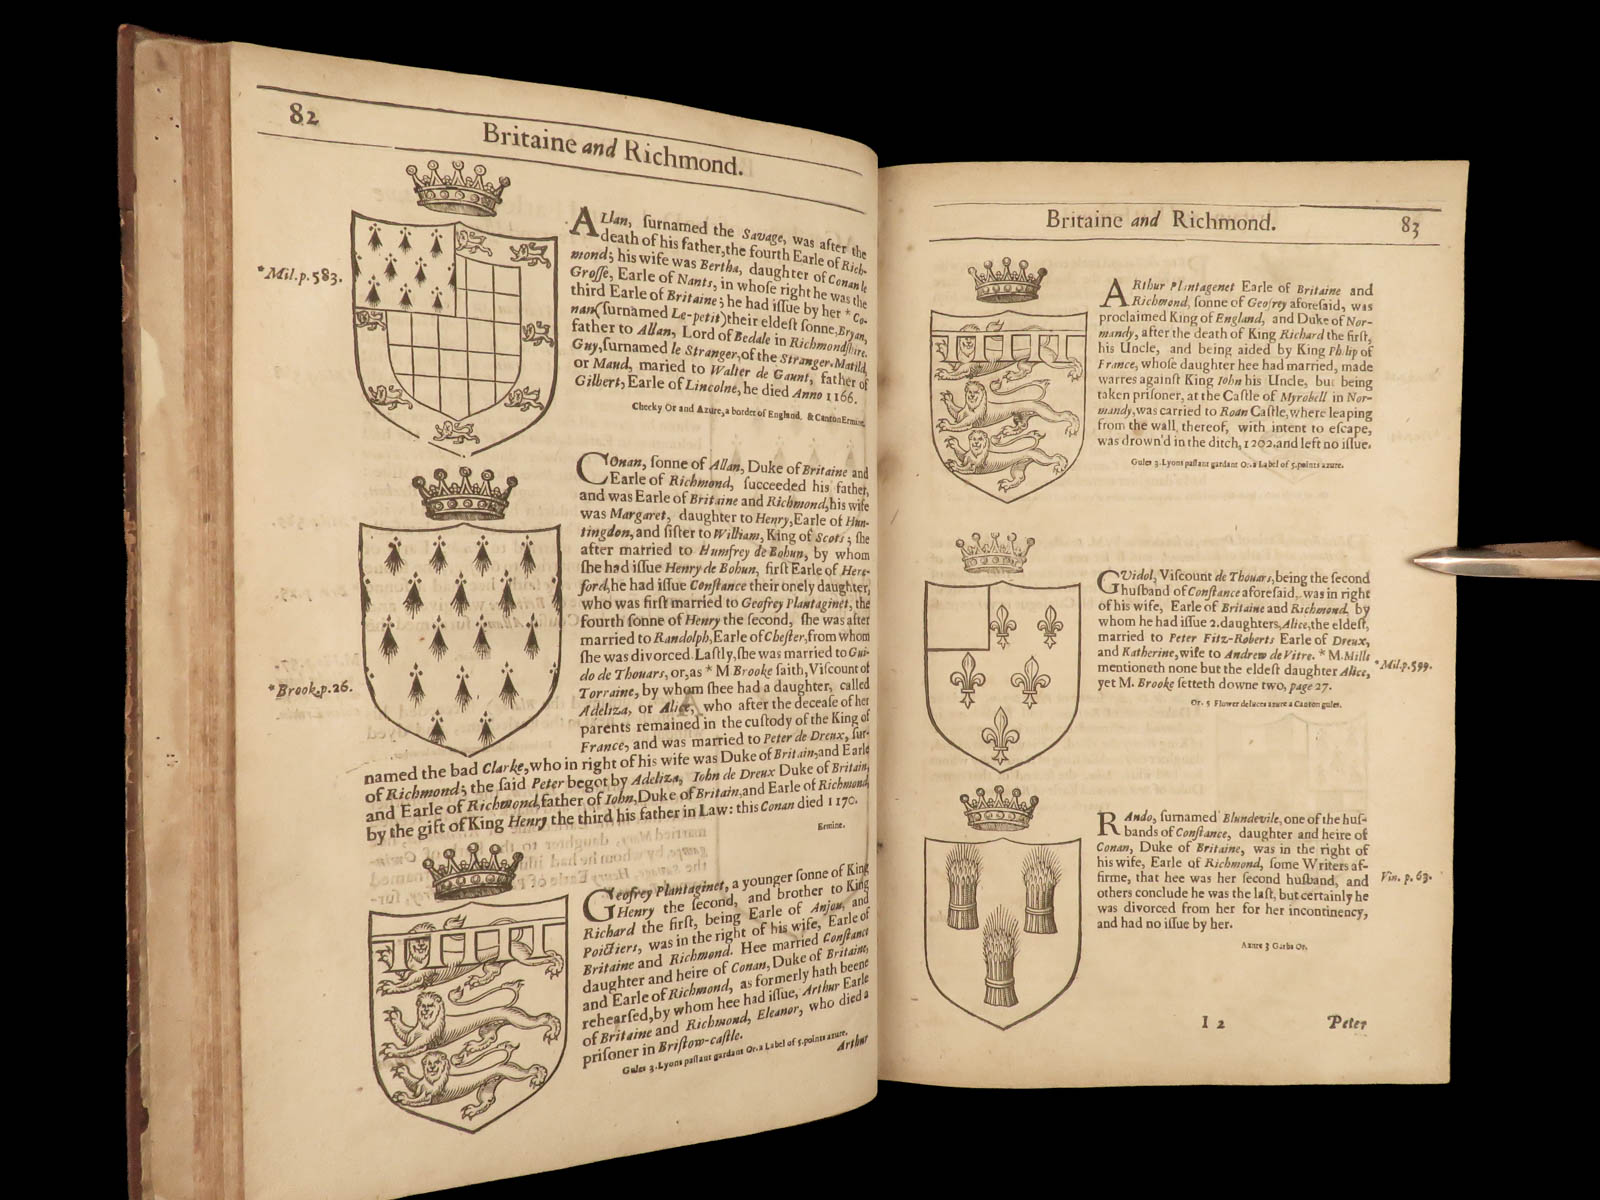 82
Britaine and Richmond.
*Mil.p.583.
ALlan, ſurnamed the Savage, was after the
death of his father,the fourth Earle of Rich-
mond; his wife was Bertha, daughter of Conan le
Groſſe, Earle of Nants, in whoſe right he was the
third Earle of Britaine; he had iſſue by her * Co-
nan(ſurnamed Le-petit)their eldeſt ſonne,Bryan,
father to Allan, Lord of Bedale in Richmondſhire.
Guy,ſurnamed le Stranger,of the Stranger.Matild,
or Maud, maried to Walter de Gaunt, father of
Gilbert, Earle of Lincolne, he died Anno 1166.
Checky Or and Azure, a border of England, & Canton Ermine.
COnan, ſonne of Allan, Duke of Britaine and
Earle of Richmond, ſucceeded his father,
and was Earle of Britaine and Richmond,his wife
was Margaret, daughter to Henry,Earle of Hun-
tingdon,and ſiſter to William, King of Scots; ſhe
after married to Humfrey de Bohun, by whom
ſhe had iſſue Henry de Bohun, firſt Earle of Here-
ford,he had iſſue Conſtance their onely daughter,
who was firſt married to Geofrey Plantaginet, the
fourth ſonne of Henry the ſecond, ſhe was after
married to Randolph,Earle of Cheſter,from whom
ſhe was divorced. Laſtly,ſhe was married to Gui-
do de Thouars, or,as * M Brooke ſaith, Viſcount of
Torraine, by whom ſhee had a daughter, called
Adeliza, or Alice, who after the deceaſe of her
parents remained in the cuſtody of the King of
France, and was married to Peter de Dreux, ſur-
*Brook.p.26.
named the bad Clarke,who in right of his wife was Duke of Britain,and Earle
of Richmond; the ſaid Peter begot by Adeliza, Iohn de Dreux Duke of Britain,
and Earle of Richmond,father of Iohn,Duke of Britain,and Earle of Richmond,
by the gift of King Henry the third his father in Law: this Conan died 1170.
Ermine.
GEofrey Plantaginet, a younger ſonne of King
Henry the ſecond, and brother to King
Richard the firſt, being Earle of Anjou, and
Poictiers, was in the right of his wife, Earle of
Britaine and Richmond. Hee married Conſtance
daughter and heire of Conan, Duke of Britaine,
and Earle of Richmond, as formerly hath beene
rehearſed,by whom hee had iſſue, Arthur Earle
of Britaine and Richmond, Eleanor, who died a
priſoner in Briſtow-caſtle.
Gules 3. Lyons paſſant gardant Or. a Label of 5. points azure.
Arthur
Britaine and Richmond.
83
ARthur Plantagenet Earle of Britaine and
Richmond, ſonne of Geofrey aforeſaid, was
proclaimed King of England, and Duke of Nor-
mandy, after the death of King Richard the firſt,
his Uncle, and being aided by King Philip of
France, whoſe daughter hee had married, made
warres againſt King Iohn his Uncle, but being
taken priſoner, at the Caſtle of Myrobell in Nor-
mandy,was carried to Roan Caſtle,where leaping
from the wall, thereof, with intent to eſcape,
was drown'd in the ditch,1202.and left no iſſue.
Gules 3. Lyons paſſant gardant Or. a Label of 5.points azure.
GVidol, Viſcount de Thouars, being the ſecond
huſband of Conſtance aforeſaid, was in right
of his wife, Earle of Britaine and Richmond, by
whom he had iſſue 2.daughters,Alice,the eldeſt,
married to Peter Fitz-Roberts Earle of Dreux,
and Katherine,wife to Andrew de Vitre. * M.Mills
mentioneth none but the eldeſt daughter Alice,
yet M. Brooke ſetteth downe two, page 27.
*Mil.p.599.
Or. 5 Flower deluces azure a Canton gules.
RAndo, ſurnamed Blundevile, one of the huſ-
bands of Conſtance, daughter and heire of
Conan, Duke of Britaine, was in the right of
his wife, Earle of Richmond, ſome Writers af-
firme, that hee was her ſecond huſband, and
others conclude he was the laſt, but certainly he
was divorced from her for her incontinency,
and had no iſſue by her.
Vin. p. 63.
Azure 3 Garbs Or.
I 2
Peter